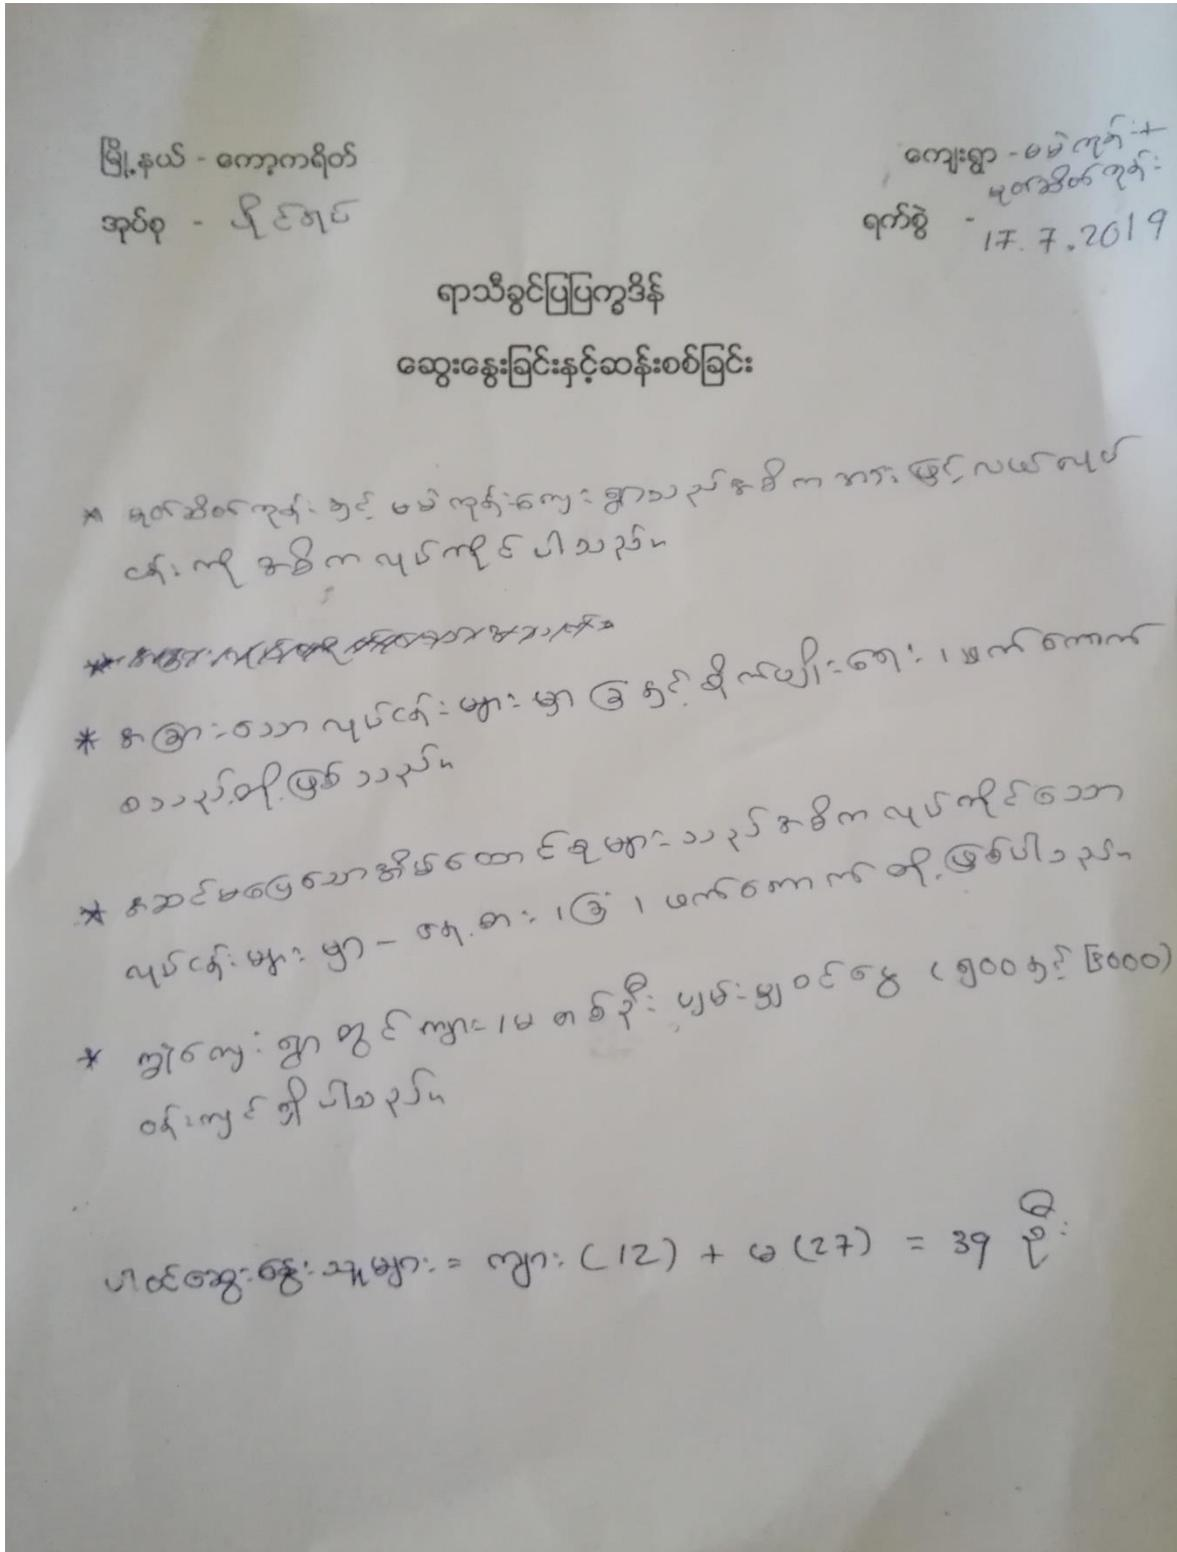 မြို့နယ် - ကော့ကရိတ်
ကျေးရွာ - မမဲကုန်း +
မုတ်ဆိတ်ကုန်း
အုပ်စု -
ရက်စွဲ - 17.7.2019
ရာသီခွင်ပြပြက္ခဒိန်
ဆွေးနွေးခြင်းနှင့်ဆန်းစစ်ခြင်း
* မုတ်ဆိတ်ကုန်း နှင့် မမဲကုန်းကျေးရွာသည် အဓိကအားဖြင့် လယ်လုပ်
ငန်းကို အဓိကလုပ်ကိုင်ပါသည်။
* အခြားသောလုပ်ငန်းများမှာ ခြံနှင့် စိုက်ပျိုးရေး၊ ဖက်ကောက်
စသည်တို့ဖြစ်သည်။
* အဆင်မပြေသောအိမ်ထောင်စုများသည် အဓိကလုပ်ကိုင်သော
လုပ်ငန်းများမှာ - နေ့စား၊ ခြံ၊ ဖက်ကောက်တို့ဖြစ်ပါသည်။
* ကျေးရွာတွင် ကျား/မ တစ်ဦး ပျမ်းမျှဝင်ငွေ ( ၅၀၀နှင့် ၆၀၀၀)
ဝန်းကျင်ရှိပါသည်။
ပါဝင်ဆွေးနွေးသူများ = ကျား (12) + မ (27) = 39 ဦး